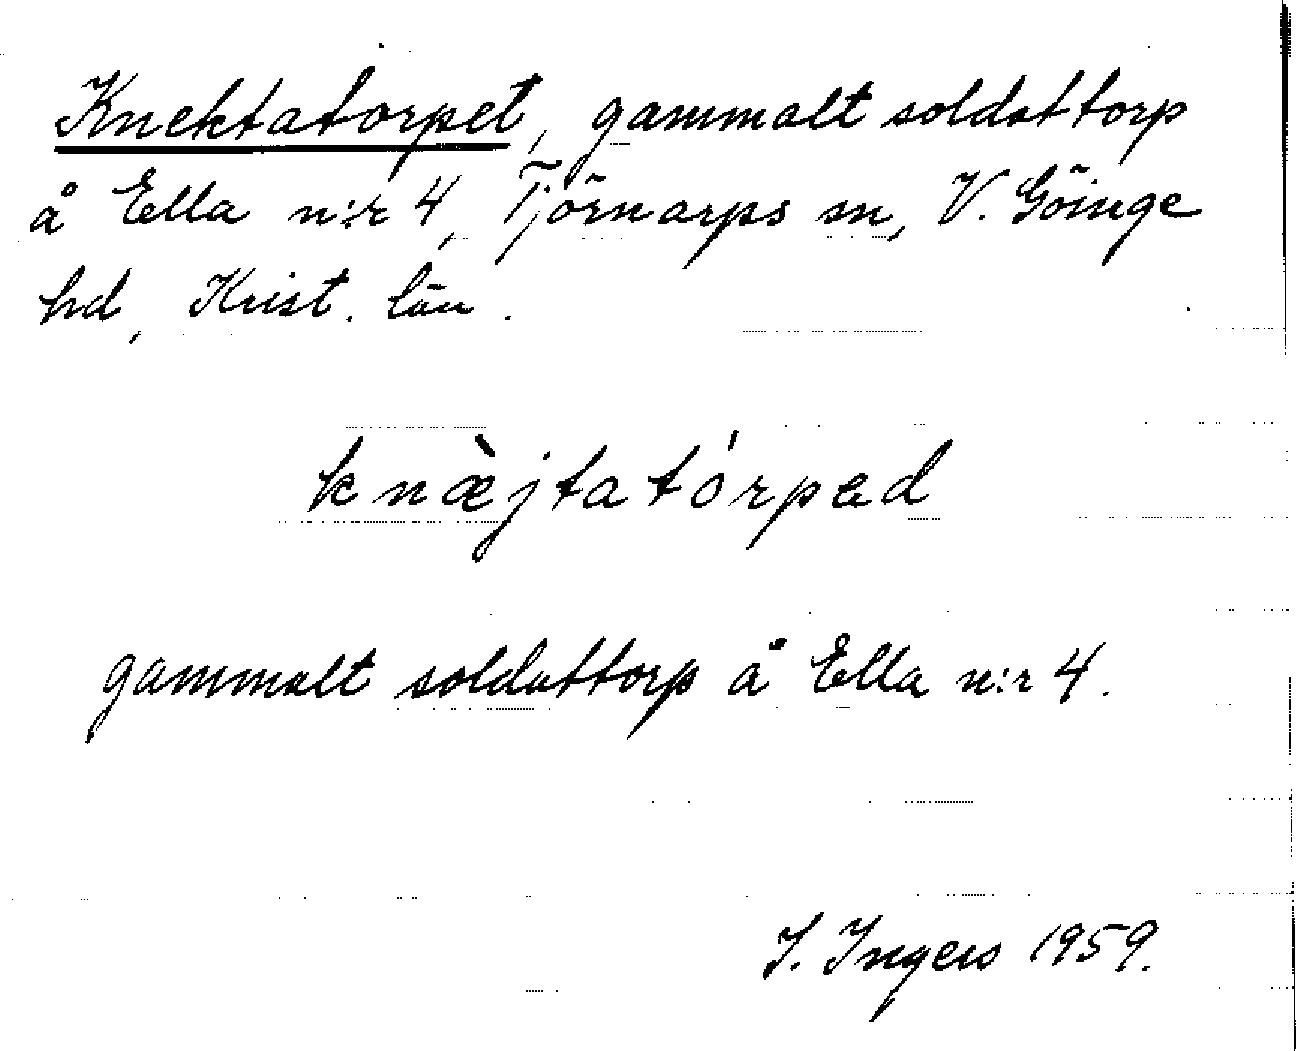 Knektatorpet, gammalt soldattorp
å Ella n:r 4, Tjörnarps sn, V. Göinge
hd, Krist. län.
knæ̀jtatórpəd
gammalt soldattorp å Ella n:r 4.
I. Ingers 1959.